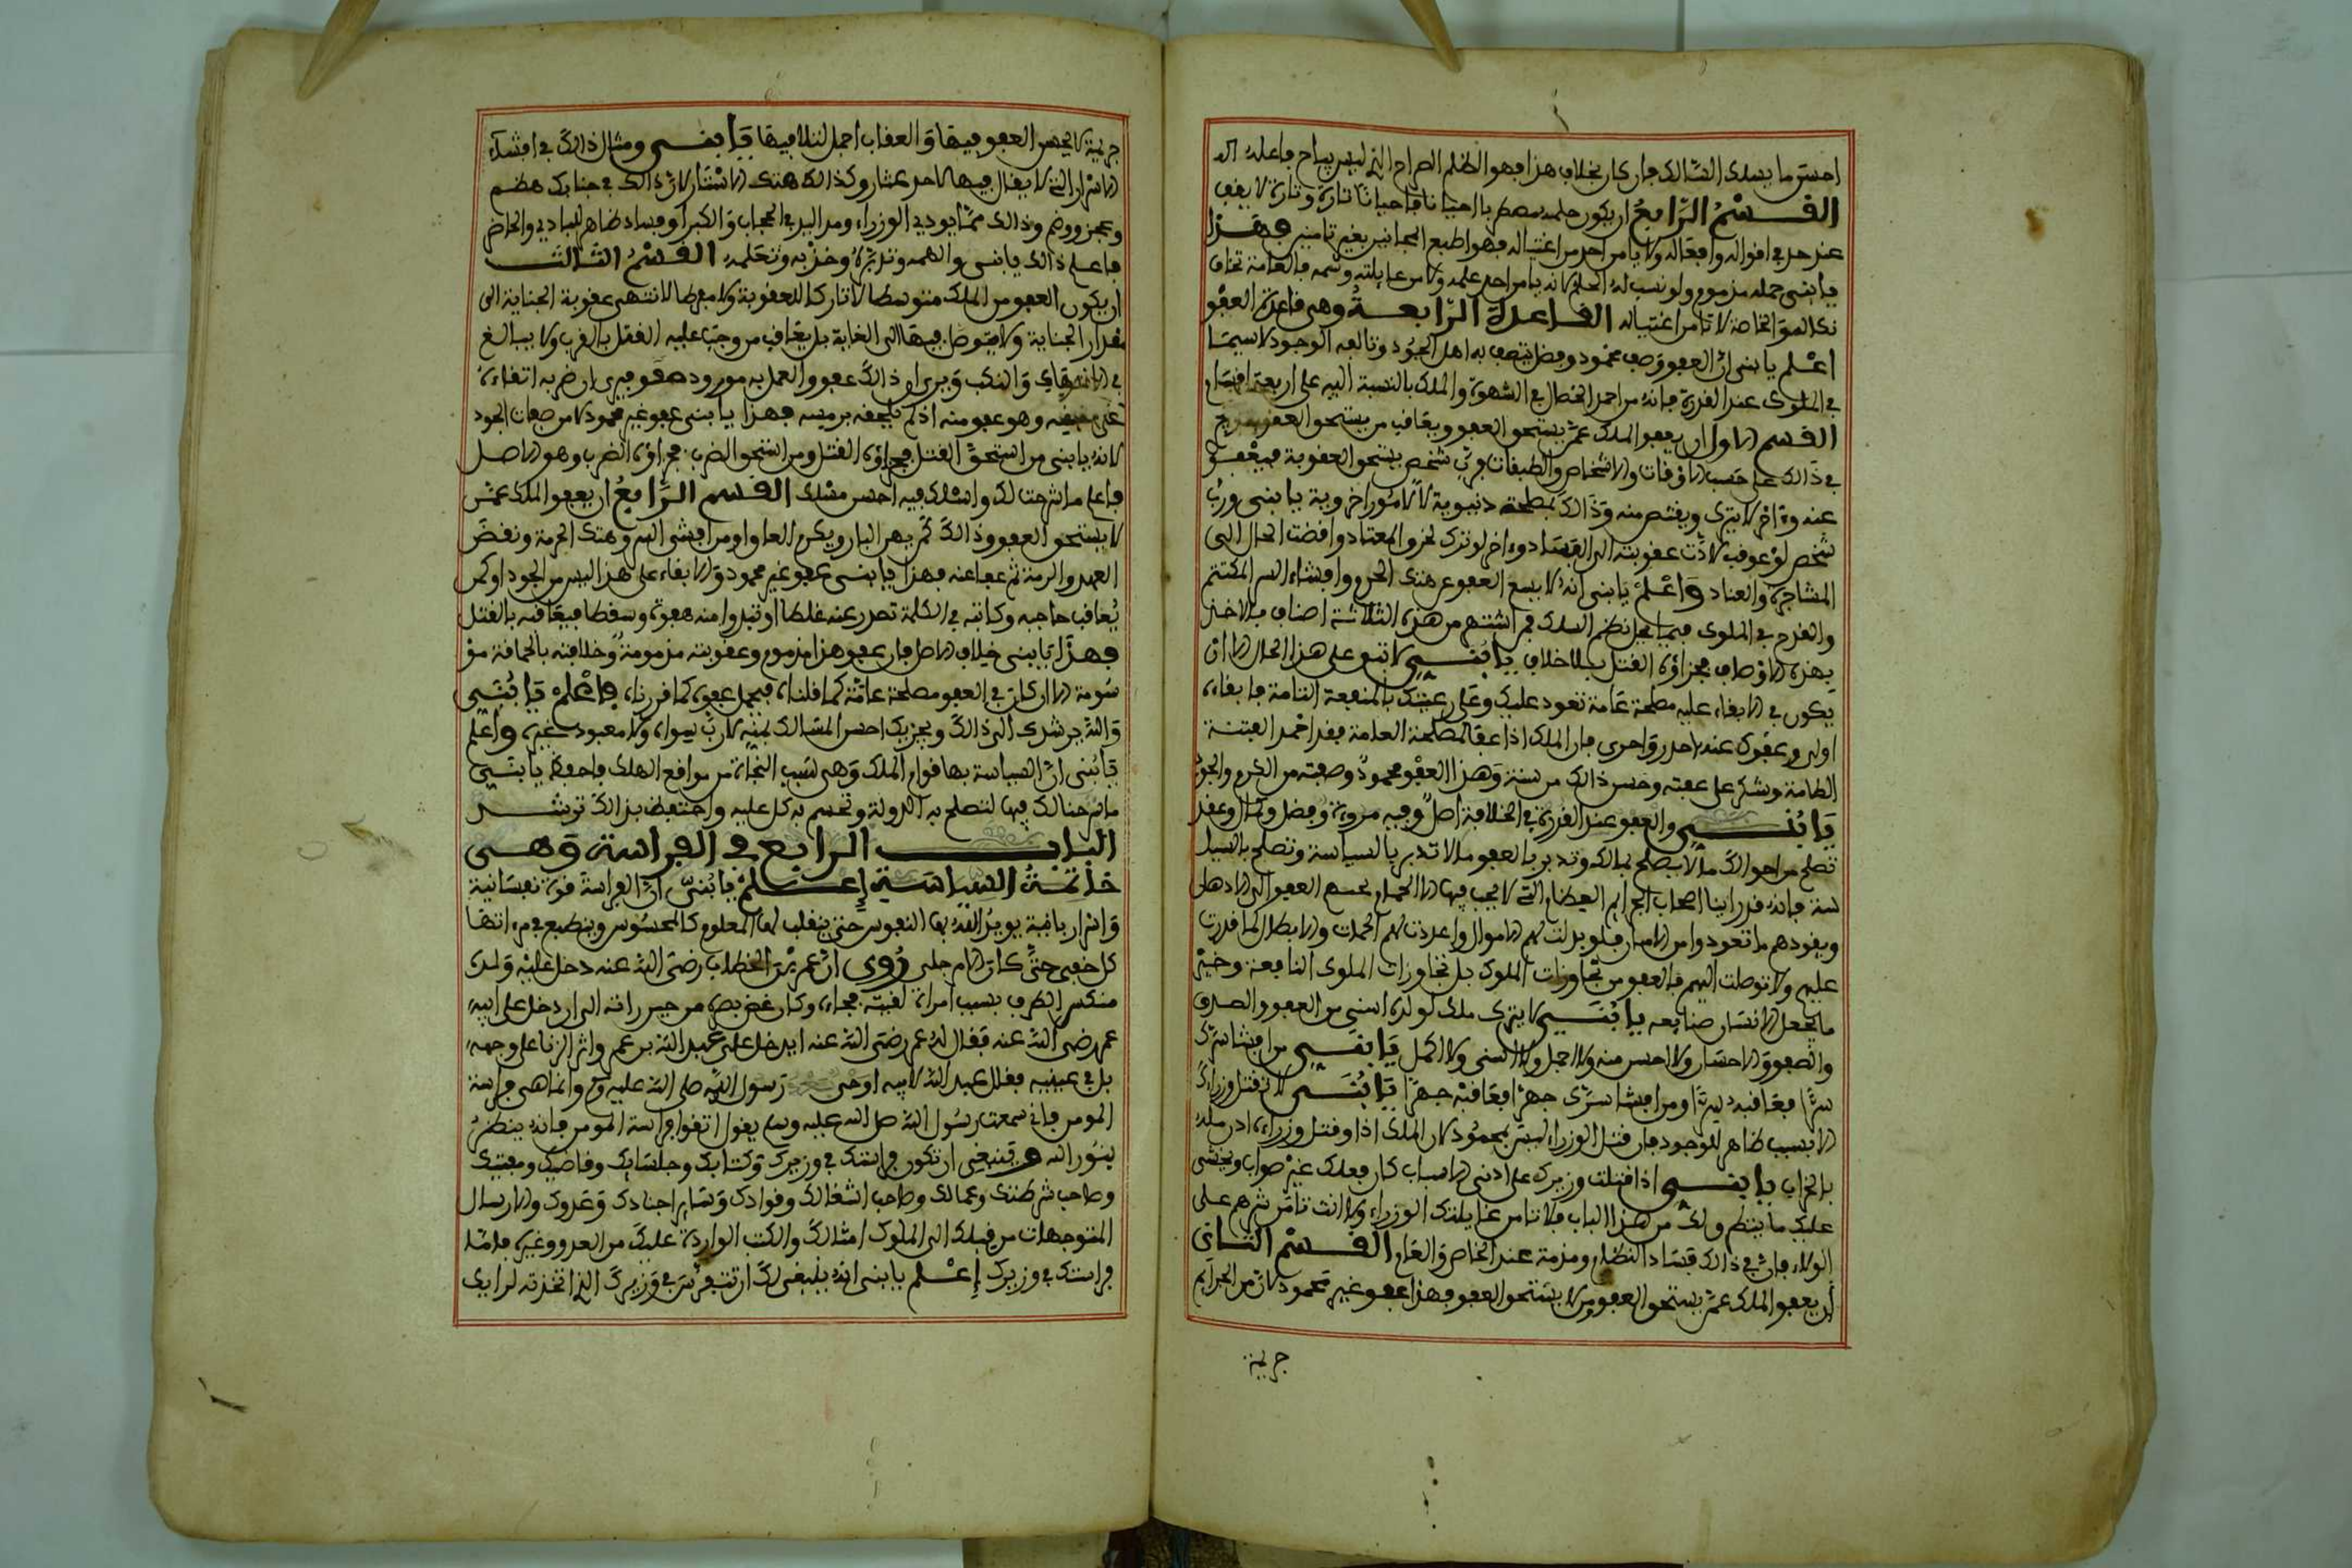 احسن ما يسلك السالك فإن كان بخلاف هذا فهو الظلم الصراح الذي ليس يباح فاعلمه
القسم الرابع ان يكون حلمه مضطربا احيانا فأحيانا تارة وتارة لا يقف
عند حد في اقواله وافعاله ولا يامن احد من اغتياله فهو اطبع المجانين بغير تامين فهذا
يا بني حمله مذموم ولو نسب له الحلم لانه يامن احد علمه ولا من غايلته وشمه فالعامة تخاف
نكاله والخاصة لا تامن اغتياله القاعدة الرابعة وهي قاعدة العفو
اعلم يا بني ان العفو وصف محمود وفضل يتصف به اهل الجود وتالفه الوجود لاسيما
في الملوك عند القدرة فانه من احمد الخصال في الشهرة والملك بالنسبة اليه على اربعة اقسام
القسم الاول ان يعفو الملك عمن يستحق العفو ويعاقب من يستحق العقوبة
في ذالك على حسب الاوقات والاشخاص والطبقات فرب شخص يستحق العقوبة فيعفو
عنه وءاخر لا يترك ويقتص منه وذالك لمصلحة دنيوية لا لامور اخروية يا بني ورب
شخص لو عوقب لادت عقوبته الى الفساد وءاخر لو ترك لخرق المعتاد وافضت الحال الى
المشاجرة والعناد واعلم يا بني انه لا يسع العفو عن هتك الحرم وافشاء السر المكتتم
والقدح في الملوك فيما يخل نظم السلك فمن اشتهر من هذه الثلاثة اصناف بالاخذ
بهذه الاوصاف فجزاؤه القتل بلا خلاف يا بني لا تبق على هذا الحال الا ان
يكون في الابقاء عليه مصلحة عامة تعود عليك وعلى رعيتك بالمنفعة التامة فابقاءه
اولى وعفوك عنه احد واحرى فان الملك اذا عفا لمصلحة العامة فقد اخمد الفتنة
الطامة ويشكر على عفته وحسن ذالك من سنة وهذا العفو محمود وصفته من الكرم والجود
يا بني والعفو عند القدرة في الخلافة اصل وفيه مروءة وفضل وكمال وعقل
تصلح من احوالك ما لا يصلح بمالك وتدبر بالعفو ما لا تدبر بالسياسة وتصلح بالسيل
سنة فانه قد راينا اصحاب الجرايم العظام التي لا يجب فيها الا الحمام يحسم العفو
ويقودهم ما تعودوا من الامان فلو بذلت لهم الاموال واعددت لهم الحمات والابطال لما قدرت
عليهم ولا توصلت اليهم فالعفو من تجاوزات الملوك بل تجاوزات الملوك النافعة وخير
ما يجعل الانسان صنايعه يا بني لا يترك ملك لولده اسنى من العفو والصدق
والصفو والاحسان ولا احسن منه ولا اجمل ولا اسنى ولا اكمل يا بني من افشا سرك
سرا فعاقبه سرا ومن افشا سرك جهرا فعاقبه جهرا يا بني لا تقتل وزراءك
الا بسبب ظاهر للوجود فان قتل الوزراء ليس بمحمود لان الملك اذا وقتل وزراءه اذن ملكه
بالخراب يا بني اذا قتلت وزيرك على ادنى الاسباب كان فعلك غير صواب ويخشى
عليك ما ينظم ولك من هذا الباب فلا تامن غايلتك الوزراء ولا انت تامن شرهم على
الولاء فان في ذالك فساد النظام ومذمة عند الخاص والعام القسم الثاني
ان يعفو الملك عمن يستحق العفو ومن لا يستحق العفو فهذا عفو غير محمود لان من الجرايم
جريمة
جريمة لا يحسن العفو فيها والعقاب اجمل لتلافيها يا بني ومثال ذالك في افشاء
الاسرار التي لا يقال فيها لاحد عثار وكذالك هتك الاستار لان ذالك في جنابك هضم
وعجز ووضم وذالك مما يودي الوزراء ومد اليد في الحجاب والكبراء وفساد ظاهر للبادي والحاضر
فاعلم ذالك يا بني والهمه وتدبره وخذ به وتعلمه القسم الثالث
ان يكون العفو من الملك متوسطا لا تاركا للعقوبة ولا مفرطا لا تنتهي عقوبة الجناية الى
مقدار الجناية ولا يتوصل فيها الى الغاية بل يعاقب من وجب عليه القتل بالضرب ولا يبالغ
في الارهاق والنكب ويرى ان ذالك عفو والعمل به مورود صفو فيرى ان ضربه اتقاءه
على نفسه وهو عفو منه اذ لم يلحقه برمسه فهذا يا بني عفو غير محمود لا من صفات الجود
لانه يا بني من استحق القتل فجزاؤه القتل ومن استحق الضرب فجزاؤه الضرب وهو الاصل
فاعلم ما شرحت لك واسلك فيه احسن مسلك القسم الرابع ان يعفو الملك عمن
لا يستحق العفو وذالك كمن يهدر البار ويكرم العاو او من افشى السر وهتك الحرمة ونقض
العهد والرمة ثم عفا عنه فهذا يا بني عفو غير محمود والابقاء على هذا ليس من الجود او كمن
يعاقب حاجبه وكاتبه في الكلمة تصدر عنه غلطا او تبدوا منه هفوة وسقطا فيعاقبه بالقتل
فهذا يا بني خلاف الاصل فان عفو هذا مذموم وعقوبته مذمومة وخلافته بالحماقة مو
سومة الا ان كان في العفو مصلحة عامة كما قلناه فيحمل عفوه كما قررناه فاعلم يا بني
والله يرشدك الى ذالك ويجزيك احسن المسالك بمنه لا رب سواه ولا معبود غيره واعلم
يا بني ان السياسة بها قوام الملك وهي سبب النجاة من مواقع الهلك فاحفظ يا بني
ما شرحنا لك فيها لتصلح به الدولة وتحسم به كل عليه واحتفظ بذالك ترشد
الباب الرابع في الفراسة وهي
خاتمة السياسة إعلم يا بني ان الفراسة قوة نفسانية
واسرار ربانية يويد الله بها النفوس حتى ينقلب لها المعلوم كالمحسوس وينطبع في مرءاتها
كل خفي حتى كان الام جلي روي ان عمر بن الخطاب رضي الله عنه دخل عليه ولده
منكسر الطرف بسبب امراة لقيته فجاءه وكان غض بصره من حين راته الى ان دخل على ابيه
عمر رضي الله عنه فقال له عمر رضي الله عنه ايدخل علي عبد الله بن عمر واثر الزنا على وجهه
بل في عينيه فقال عبد الله لابيه اوحي رسول الله صلى الله عليه وسلم وانما هي فراسة
المومن فاني سمعت رسول الله صلى الله عليه وسلم يقول اتقوا فراسة المومن فانه ينظر
بنور الله وينبغي ان تكون فراستك في وزيرك وكتابك وجلسايك وقاضيك ومفتيك
وصاحب شرطتك وعمالك وصاحب اشغالك وقوادك وساير اجنادك وعدوك والارسال
المتوجهات من قبلك الى الملوك امثالك والكتب الواردة عليك من العدو وغيره فاما
فراستك في وزيرك إعلم يا بني انه ينبغي لك ان تتفرس في وزيرك الذي اتخذته لرايك